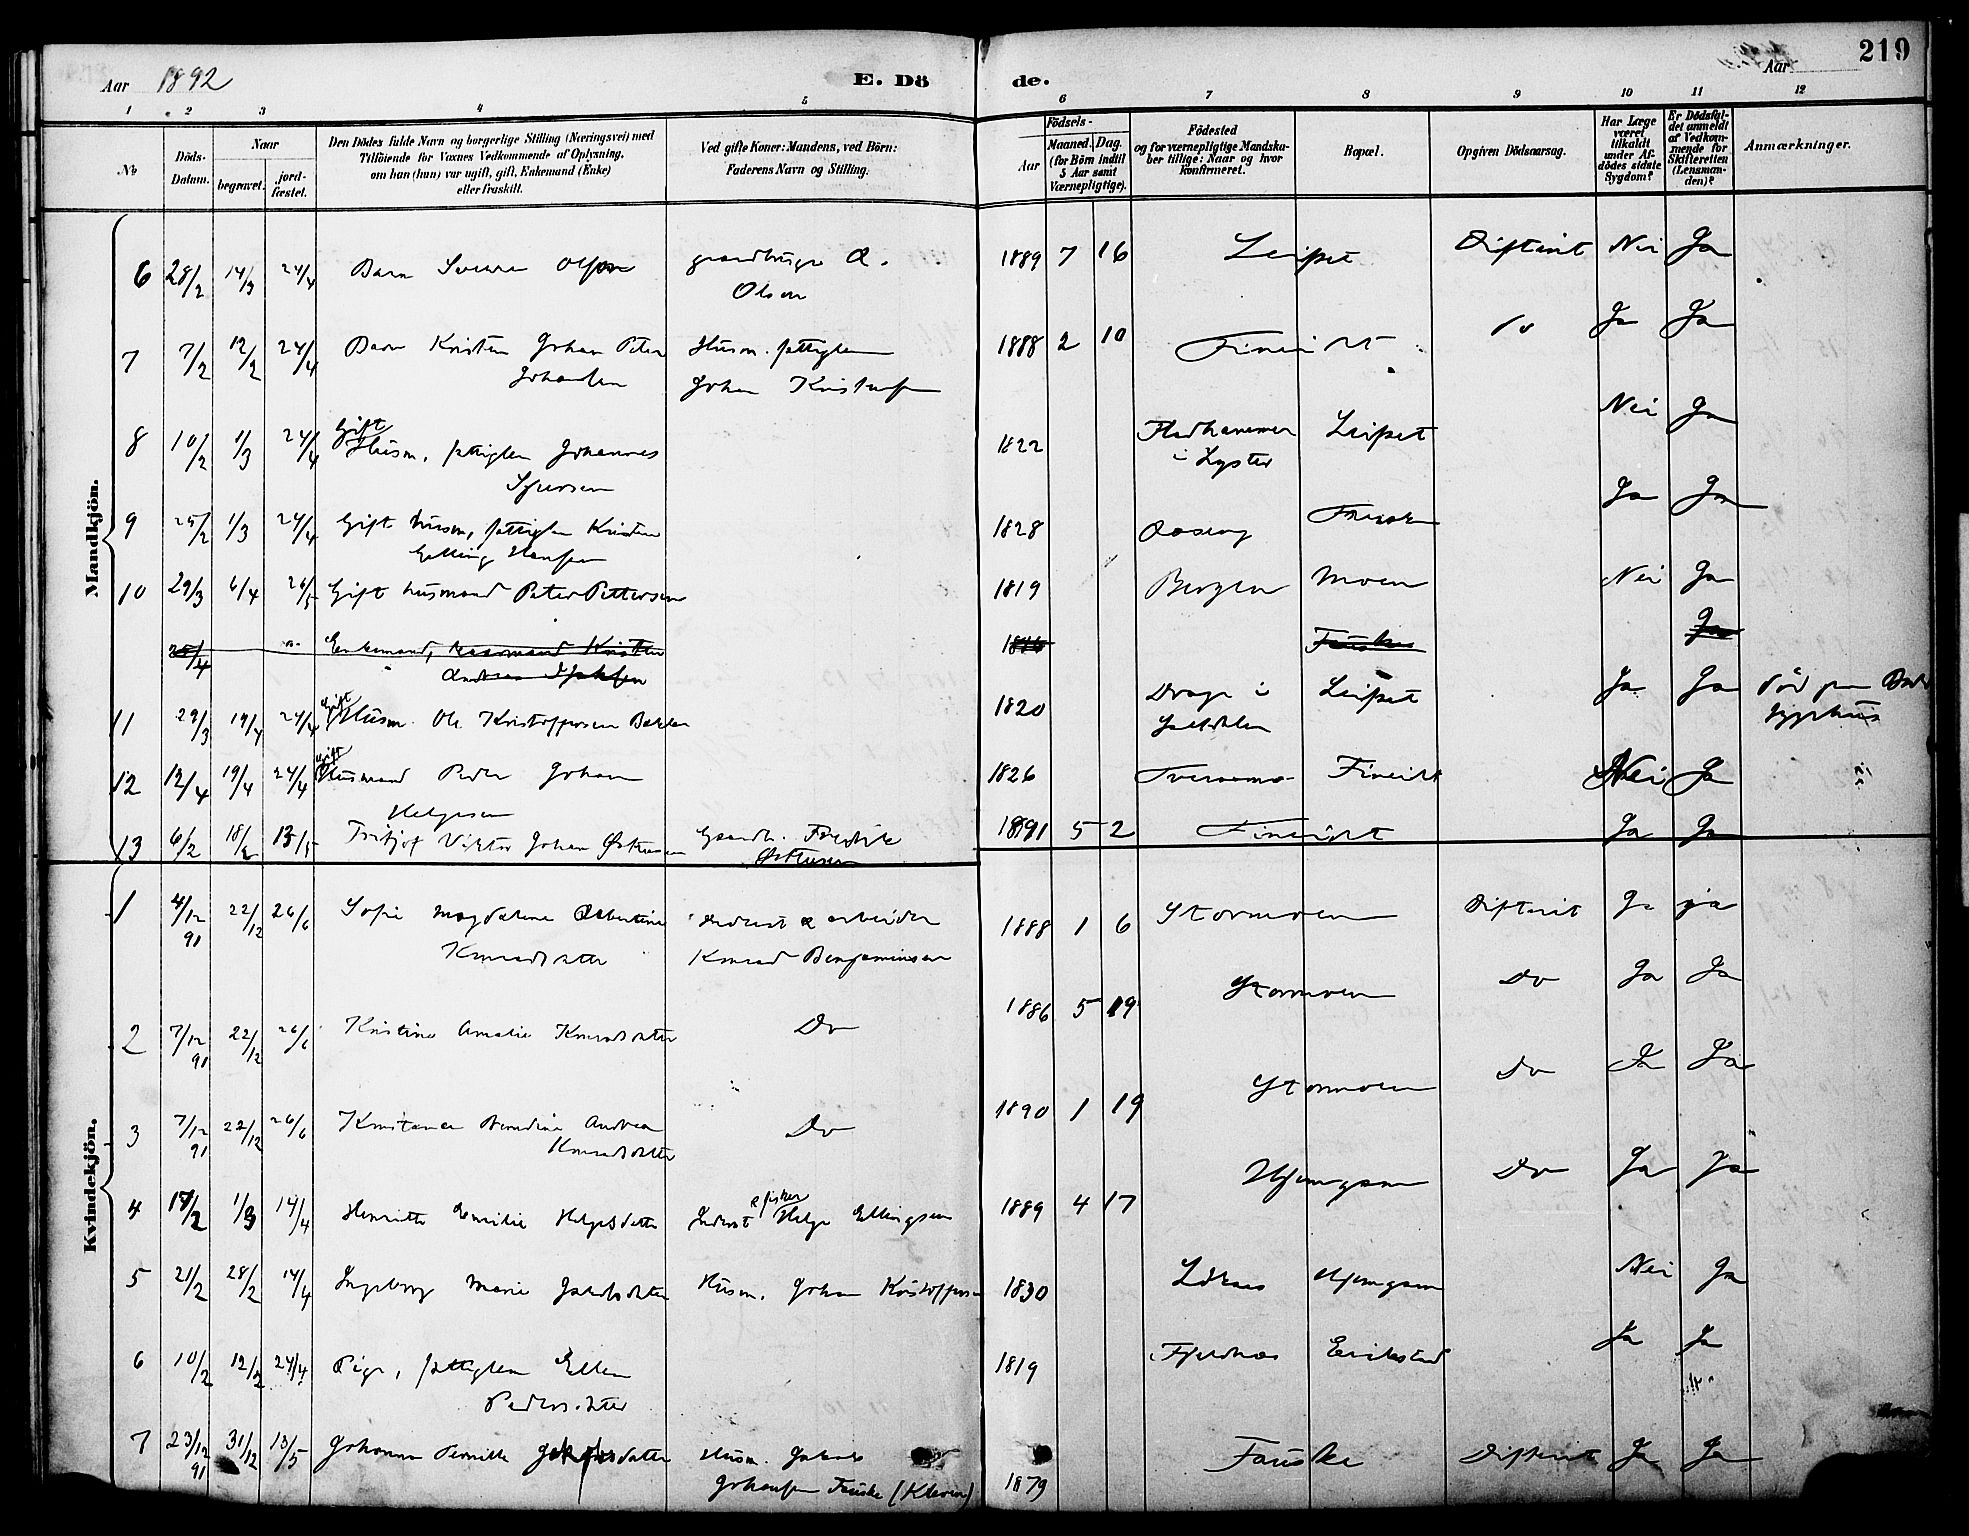 Aar 1892 E. Döde. Aar 219
1 2 3 4 5 6 7 8 9 10 11 12
No
Döds-Datum.
Naar
begravet.
jordfæstet.
Den Dödes fulde Navn og borgerlige Stilling (Næringsvei) med
Tilföiende for Voxnes Vedkommende af Oplysning,
om han (hun) var ugift, gift, Enkemand (Enke)
eller fraskilt.
Ved gifte Koner: Mandens, ved Börn:
Faderens Navn og Stilling.
Födsels-
Aar
Maaned. Dag.
(for Börn indtil
5 Aar samt
Værnepligtige).
Födested
og for værnepligtige Mandskaber tillige: Naar og hvor
konfirmeret.
Bopæl.
Opgiven Dödsaarsag.
Har Læge
været
tilkaldt
under Afdödes sidste
Sygdom?
Er Dödsfaldet anmeldt
af Vedkommende for
Skifteretten
(Lensmanden)?
Anmærkninger.
Mandkjön.
6 28/2 14/3 24/4 Barn Sverre Olsen gaardbruger O. 1889 7 16 Leifset Difterit Nei Ja
Olsen
7 7/2 12/2 24/4 Barn Kristen Johan Peter Husm. fattiglem 1888 2 10 Fineidet Do Ja Ja
Johansen Johan Kristensen
8 10/2 1/3 24/4 Gift Husm. fattiglem Johannes 1822 Leifset Nei Ja
Sjursen i Lyster
9 25/2 1/3 24/4 Gift husm. fattiglem Kristen 1828 Ja Ja
Elling Hansen
10 29/3 6/4 26/5 Gift husmand Peter Pettersen 1819 Bergen Moen Nei Ja
25/4 Enkemand, Kristen 1816 Fauske Ja
Andreas
11 29/3 19/4 24/4 Gift Husm. Ole Kristoffersen Bakken 1820 i Leifset Ja Ja Död paa Bodö
Saltdalen Sygehus
12 12/4 19/4 24/4 Gift Husmand Peder Johan 1826 Fineidet Nei Ja
Helgesen
13 6/2 18/2 13/5 Fritjof Viktor Johan Østensen Gaardb. Fredrik 1891 5 2 Fineidet Ja Ja
Østensen
Kvindekjön.
1 4/12 91 22/12 26/6 Sofie Magdalene Albertine Inderst & arbeider 1888 1 6 Stormoen Difterit Ja ja
Konradsdatter Konrad Benjaminsen
2 7/12 91 22/12 26/6 Kristine Amalie Konradsdatter Do 1886 5 19 Stormoen Do Ja Ja
3 7/12 91 22/12 26/6 Konstance Berndine Andrea Do 1890 1 19 Stormoen Do Ja Ja
Konradsdatter
4 17/2 1/3 14/4 Henritte Emilie Helgesdatter Inderst & fisker Helge Ellingsen 1889 4 17 Hjemgam Do Ja Ja
5 21/2 28/2 14/4 Ingeborg Marie Jakobsdatter Husm. Johan Kristoffersen 1830 Hjemgam Nei Ja
6 10/2 12/2 24/4 Pige, fattiglem Ellen 1819 Erikstad Ja Ja
Pedersdatter
7 23/12 91 31/12 13/5 Johanna Pernille Jakobsdatter Husm. Jakob 1879 Fauske Difterit Ja Ja
Johansen Fauske (Kleven)